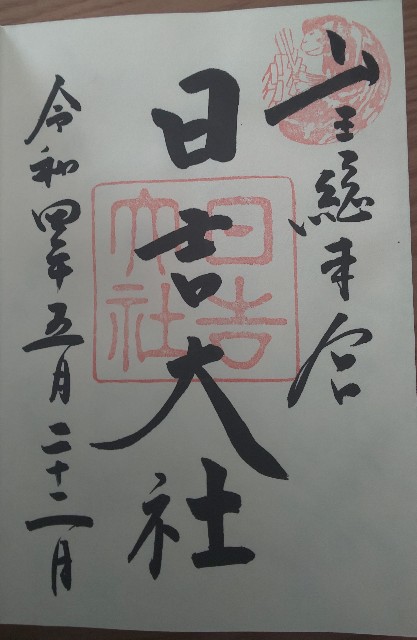 山王総本宮
日吉大社
日吉大社
令和四年五月二十二日